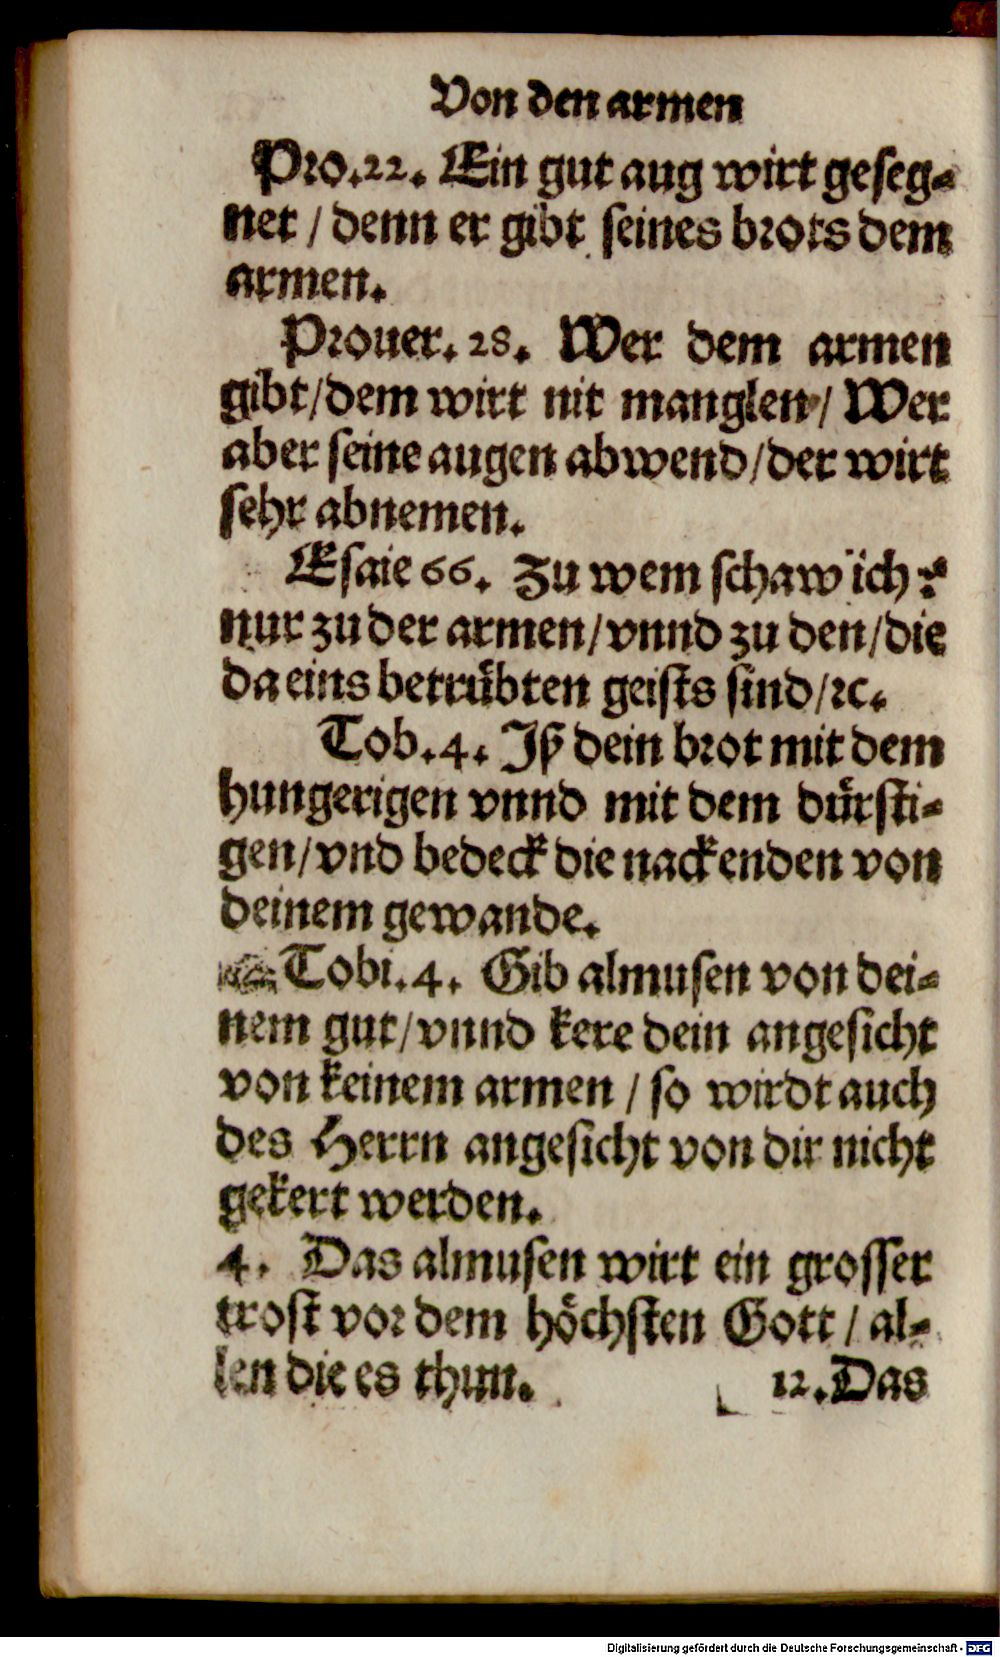 Von den armen
Pro.22. Ein gut aug wirt geseg-
net / denn er gibt seines brots dem
armen.
Prouer. 28. Wer dem armen
gibt/dem wirt nit manglen/ Wer
aber seine augen abwend/der wirt
sehr abnemen.
Esaie 66. Zu wem schaw ich?
nur zu der armen/vnnd zu den/die
da eins betrůbten geists sind/ꝛc.
Tob.4. Iß dein brot mit dem
hungerigen vnnd mit dem dürsti-
gen/vnd bedeck die nackenden von
deinem gewande.
Tobi.4. Gib almusen von dei-
nem gut/vnnd kere dein angesicht
von keinem armen / so wirdt auch
des Herrn angesicht von dir nicht
gekert werden.
4. Das almusen wirt ein grosser
trost vor dem höchsten Gott / al-
len die es thun.
12.Das
Digitalisierung gefördert durch die Deutsche Forschungsgemeinschaft - DFG